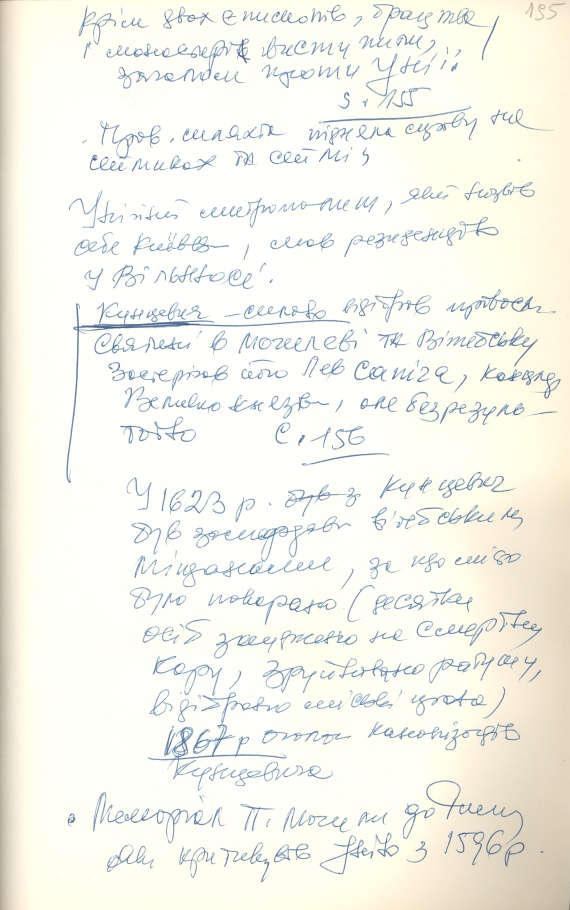 195
Крім двох єпископів, братства
і монастирів виступили,
загалом проти Унії.
s. 155
. Прав. шляхта підняла справу на
сеймиках та сеймі
Унійний митрополит, який назвав
себе Київським, мав резиденцію
у Вільнюсі.
Кунцевич – силою відібрав правосл.
святині в Могилеві та Вітебську
Застерігав його Лев Сапіга, канцлер
Великого князівства, але безрезуль–
татно С. 156
У 1623 р. був з Кунцевич
був замордован вітебськими
міщанами, за що місто
було покарано (десятки
осіб засуджено на смертну
кару, зруйновано ратушу,
відібрано міські права)
1867 р оголош канонізацію
Кунцевича
• Меморіал П. Могили до Риму
Він критикував Унію з 1596 р.